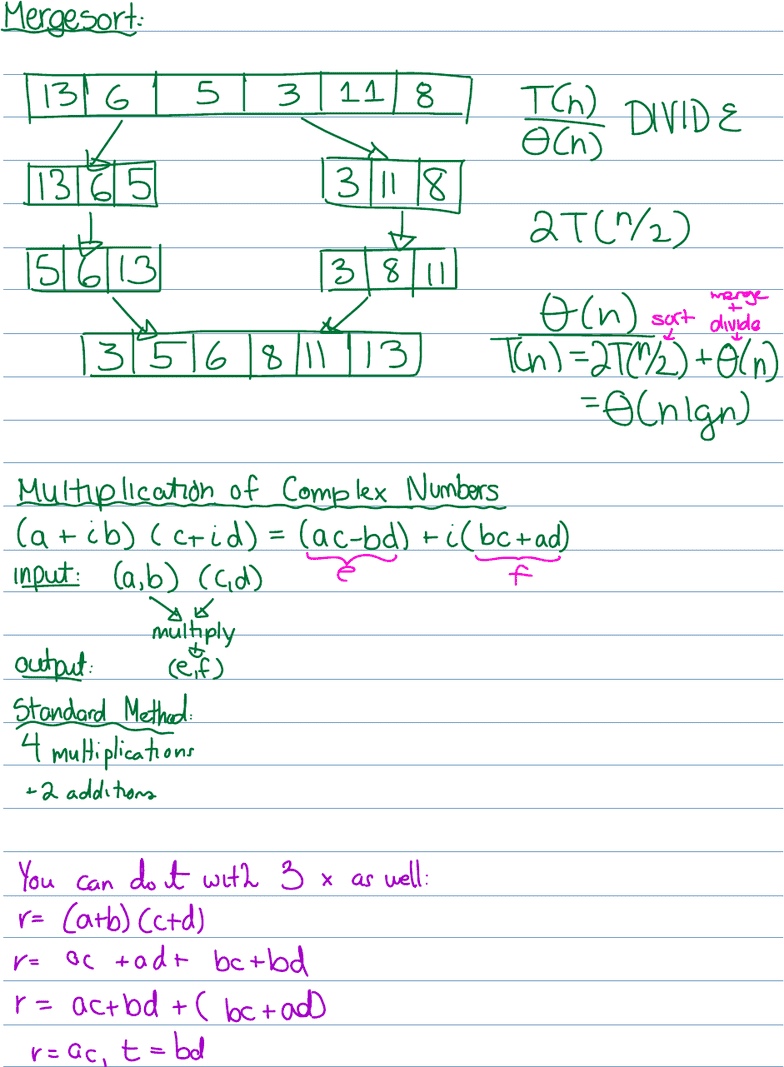 Mergesort:
13 6 5 3 11 8
T(n)
θ(n)
DIVIDE
13 6 5
3 11 8
2T(n/2)
5 6 13
3 8 11
θ(n)
sort
merge
+
divide
3 5 6 8 11 13
T(n) = 2T(n/2) + θ(n)
= θ(n lgn)
Multiplication of Complex Numbers
(a + ib) (c+id) = (ac-bd) + i(bc+ad)
e
f
input: (a,b) (c,d)
multiply
output: (e,f)
Standard Method:
4 multiplications
+2 additions
You can do it with 3 x as well:
r= (a+b) (c+d)
r= ac +ad+ bc+bd
r = ac+bd +( bc+ad)
r=ac, t = bd